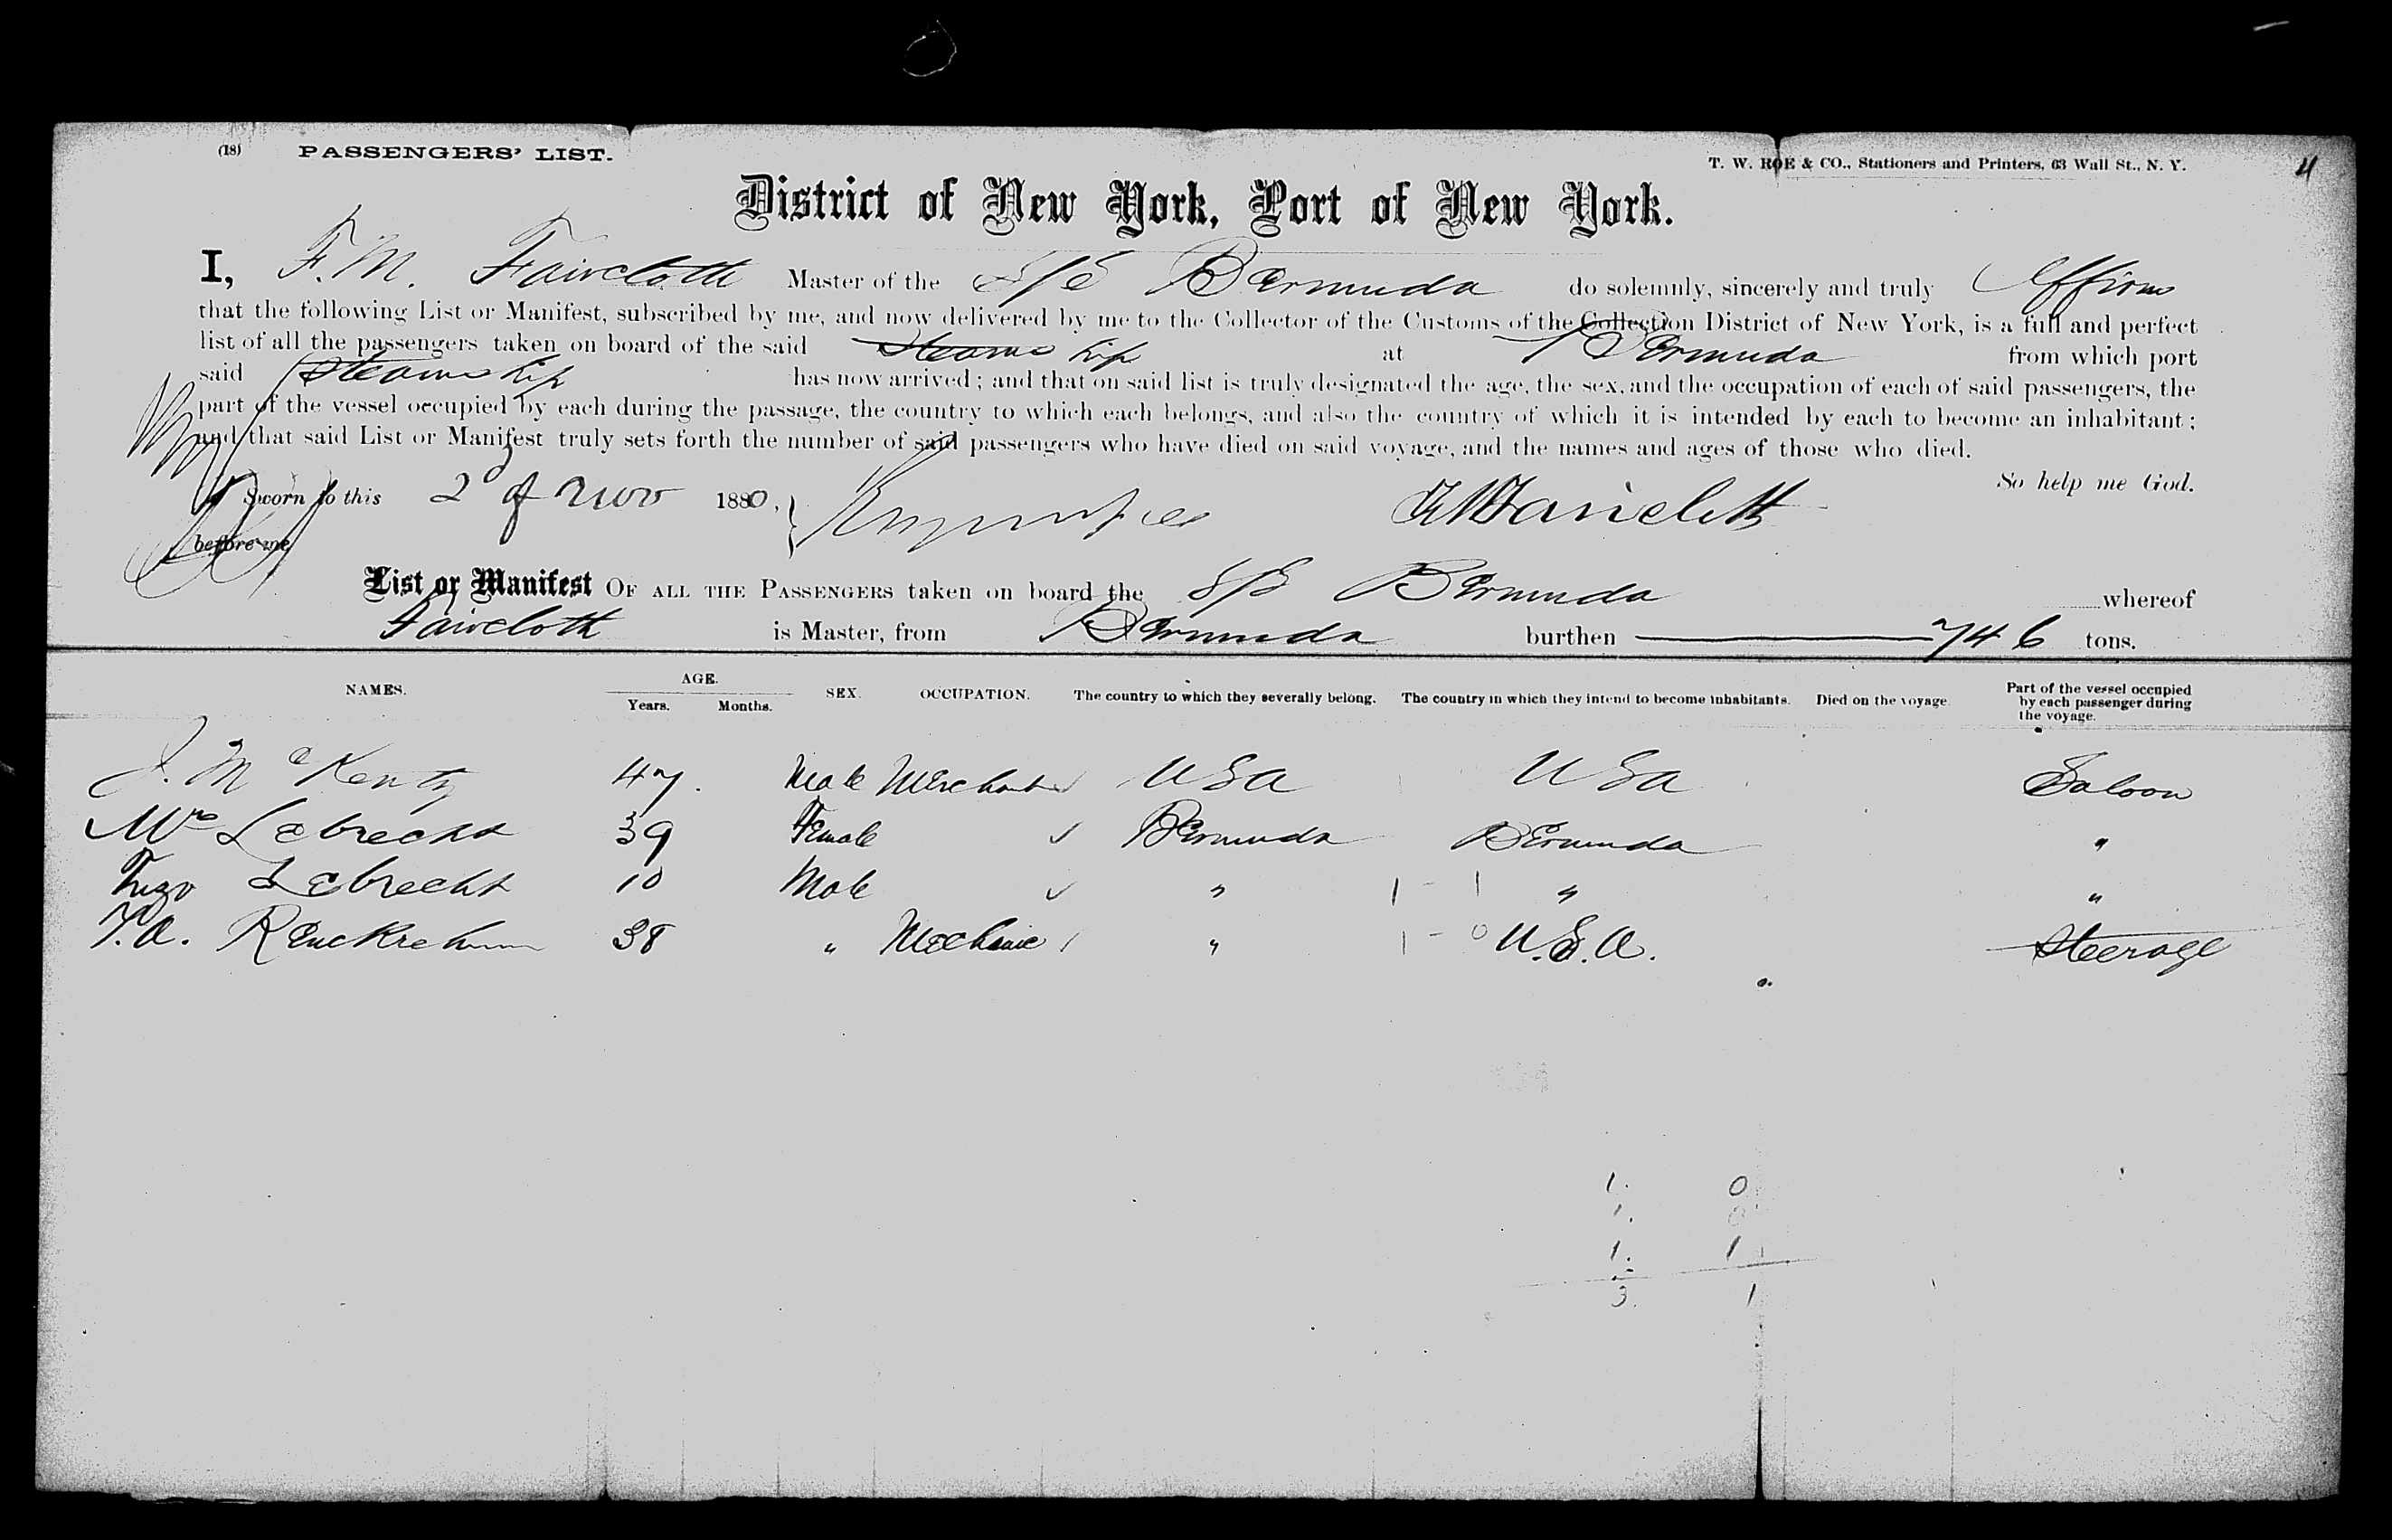 (18) PASSENGERS' LIST.
T. W. ROE & CO., Stationers and Printers, 63 Wall St., N. Y.
4
District of New York, Port of New York.
I, F. M. Faircloth Master of the S/S Bermuda do solemnly, sincerely and truly Affirm
that the following List or Manifest, subscribed by me, and now delivered by me to the Collector of the Customs of the Collection District of New York, is a full and perfect
list of all the passengers taken on board of the said Steamship at Bermuda from which port
said Steamship has now arrived; and that on said list is truly designated the age, the sex, and the occupation of each of said passengers, the
part of the vessel occupied by each during the passage, the country to which each belongs, and also the country of which it is intended by each to become an inhabitant;
and that said List or Manifest truly sets forth the number of said passengers who have died on said voyage, and the names and ages of those who died.
So help me God.
Sworn to this 2d of Nov 1880, F M Faircloth
before me
List or Manifest OF ALL THE PASSENGERS taken on board the S/S Bermuda whereof
Faircloth is Master, from Bermuda burthen 746 tons.
NAMES. AGE. Years. Months. SEX. OCCUPATION. The country to which they severally belong. The country in which they intend to become inhabitants. Died on the voyage. Part of the vessel occupied by each passenger during the voyage.
J. McKenty 47. Male Merchant USA USA Saloon
Mrs Lebrecht 39 Female Bermuda Bermuda "
Lebrecht 10 Male " 1 - 1 " "
38 " Mechanic " 1 - 0 U.S.A. Steerage
1. 0
1. 0
1. 1
3. 1